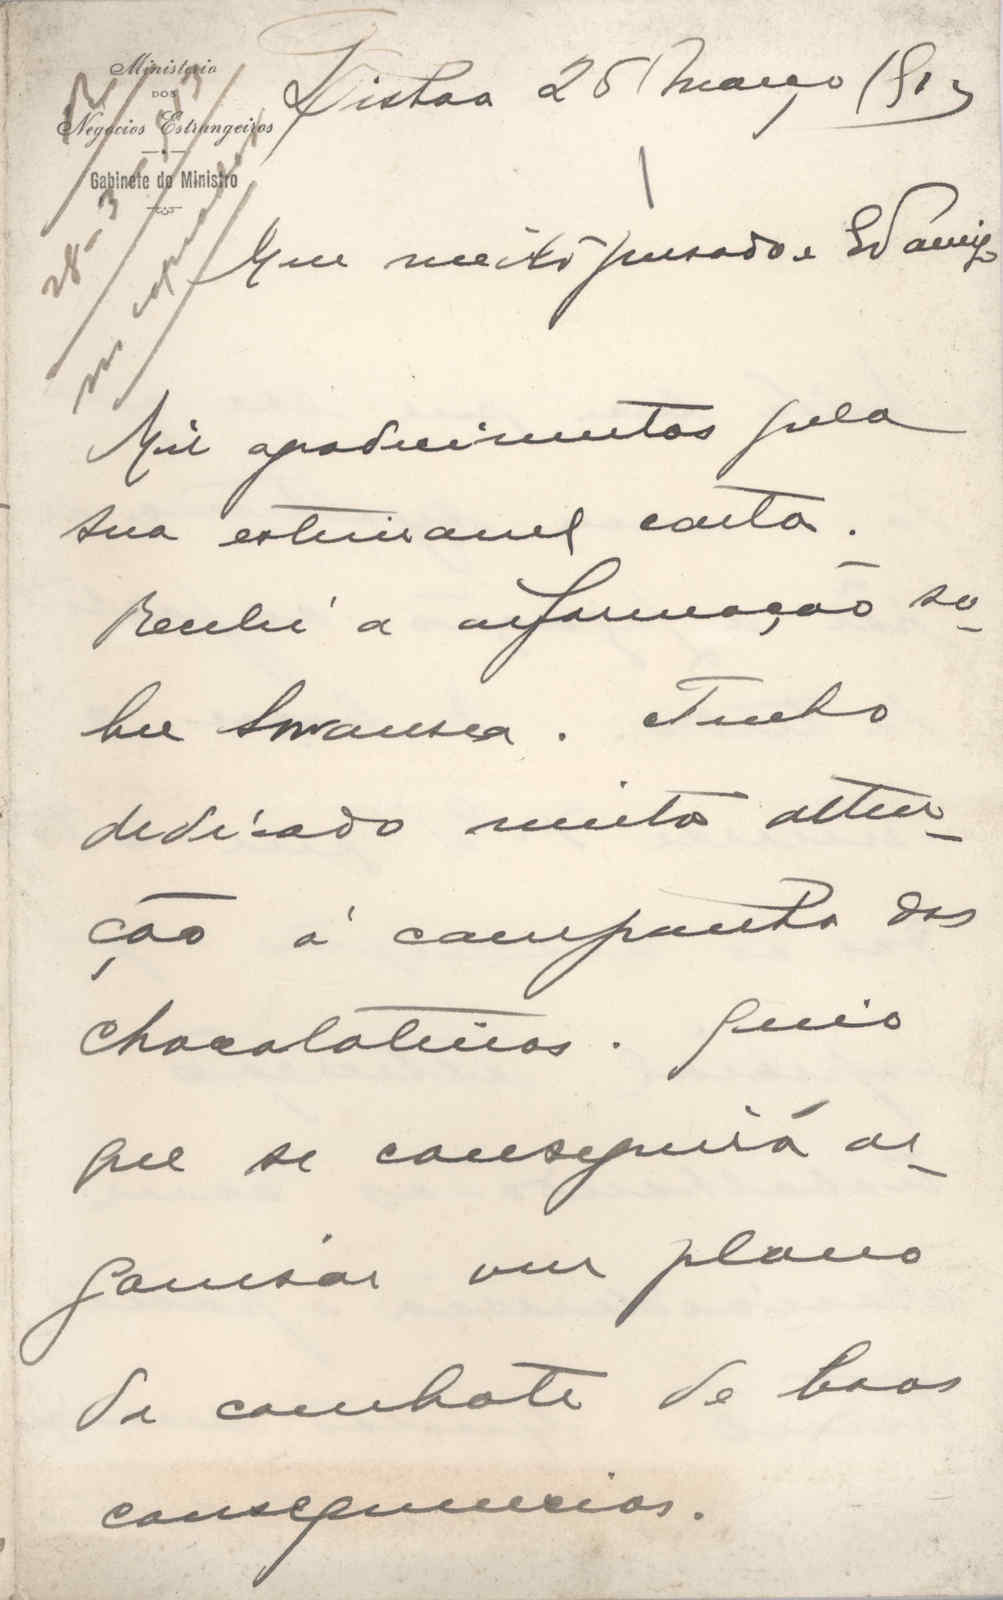 Ministerio
DOS
Negocios Estrangeiros
Gabinete do Ministro
R
28-3-913
Lisboa 26 Março 1913
Meu muito presado e Ex amigo
Mil agradecimentos pela
sua estimavel carta.
Recebi a informação so-
bre Swansea. Tenho
dedicado muita atten-
ção á campanha dos
chocolateiros. Creio
que se conseguirá or-
ganisar um plano
de combate de boas
consequencias.